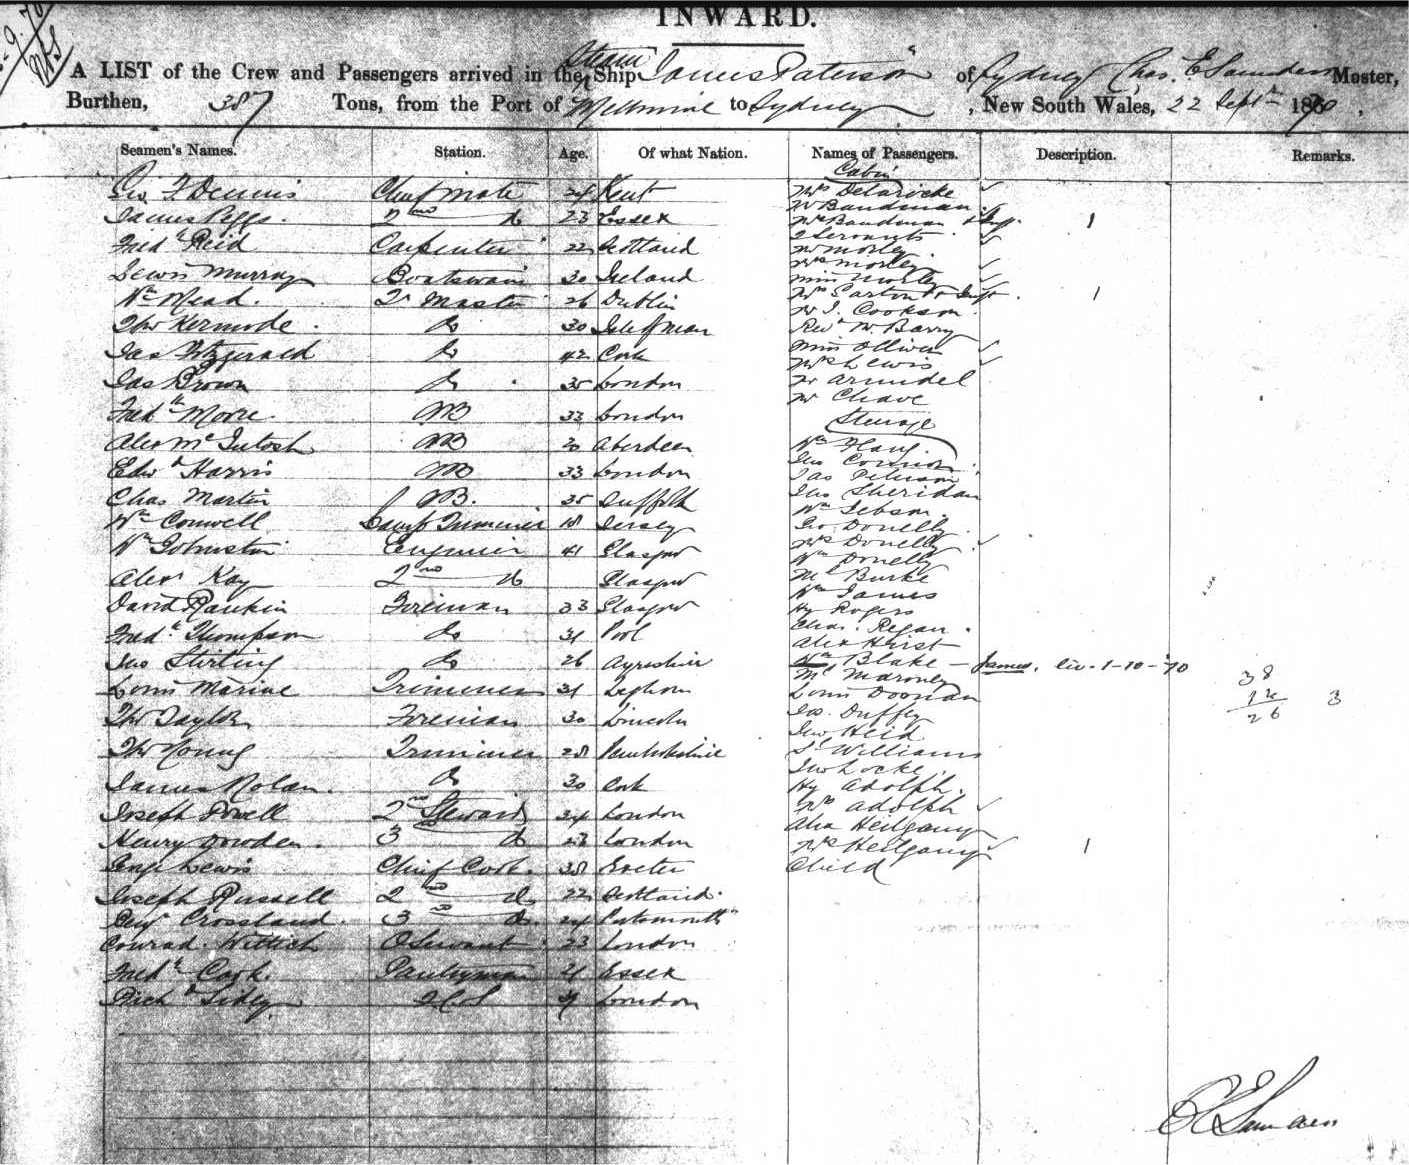 INWARD.
A LIST of the Crew and Passengers arrived in the Steam Ship James Paterson of Sydney Chas. E Saunders Master,
Burthen, 387 Tons, from the Port of Melbourne to Sydney, New South Wales, 22 Septr 1870,
Seamen's Names. Station. Age. Of what Nation. Names of Passengers. Description. Remarks.
Cabin
Geo F Dennis Chief Mate 24 Kent
James Riggs. 2nd do 23 Essex
Fredk Reid Carpenter 22 Scotland
Lewis Murray Boatswain 30 Ireland
Wm Mead. Qr Master 26 Dublin
Thos Kermode. do 30 Isle of Man
Jas Fitzgerald do 42 Cork
Jas Brown do 35 London
Fredk Moore AB 33 London
Alex McIntosh AB 30 Aberdeen
Edwd Harris AB 33 London
Chas Martin AB. 35 Suffolk
Wm Conwell Lamp Trimmer 18 Jersey
Wm Johnston Engineer 41 Glasgow
Alexr Kay 2nd do Glasgow
David Rankin Fireman 33 Glasgow
Fredk Thompson do 31
Jno Stirling do 26 Ayrshire
Louis Marine Trimmer 31 Leghorn
Thos Taylor Fireman 30 Lincoln
Thos Young Trimmer 28 Pembrokeshire
James Nolan. do 30 Cork
Joseph Powell 2nd Steward 34 London
Henry Dowden. 3 do 23 London
Lewis Chief Cook. 38 Exeter
Joseph Russell 2nd do 22 Scotland
Benj Crossland. 3rd do. 24 Portsmouth
Conrad Wittich O Servant 23 London
Fredk Cook. Pantryman 21 Essex
Richd Sidley London
Mrs Delaricke
Mr Bandman
Mrs Bandman & Inft. 1
2 Servants
Mr Morley
Mrs Morley
Miss Morley
Mrs Sarton & Inft. 1
Mr J. Cookson
Revd W. Barry
Miss Olliver
Mrs Lewis
Mr Arundel
Mr Chave
Steerage
Wm
Jno Connor
Jas Peterson
Jno Sheridan
Wm
Geo Donelly
Mrs Donelly
Wm Donelly
Ml Burke
Wm James
Hy Rogers
Chas. Regan.
Alex Hurst
Wm Blake – James. liv. 1-10-70
Ml Maroney
Louis Doonan
Jas. Duffey
Jno Heid
Williams
Jno Locke
Hy Adolph.
Mrs Adolph
Alex Heilgamp
Mrs Heilgamp 1
Child
38
12
26 3
C E Saunders